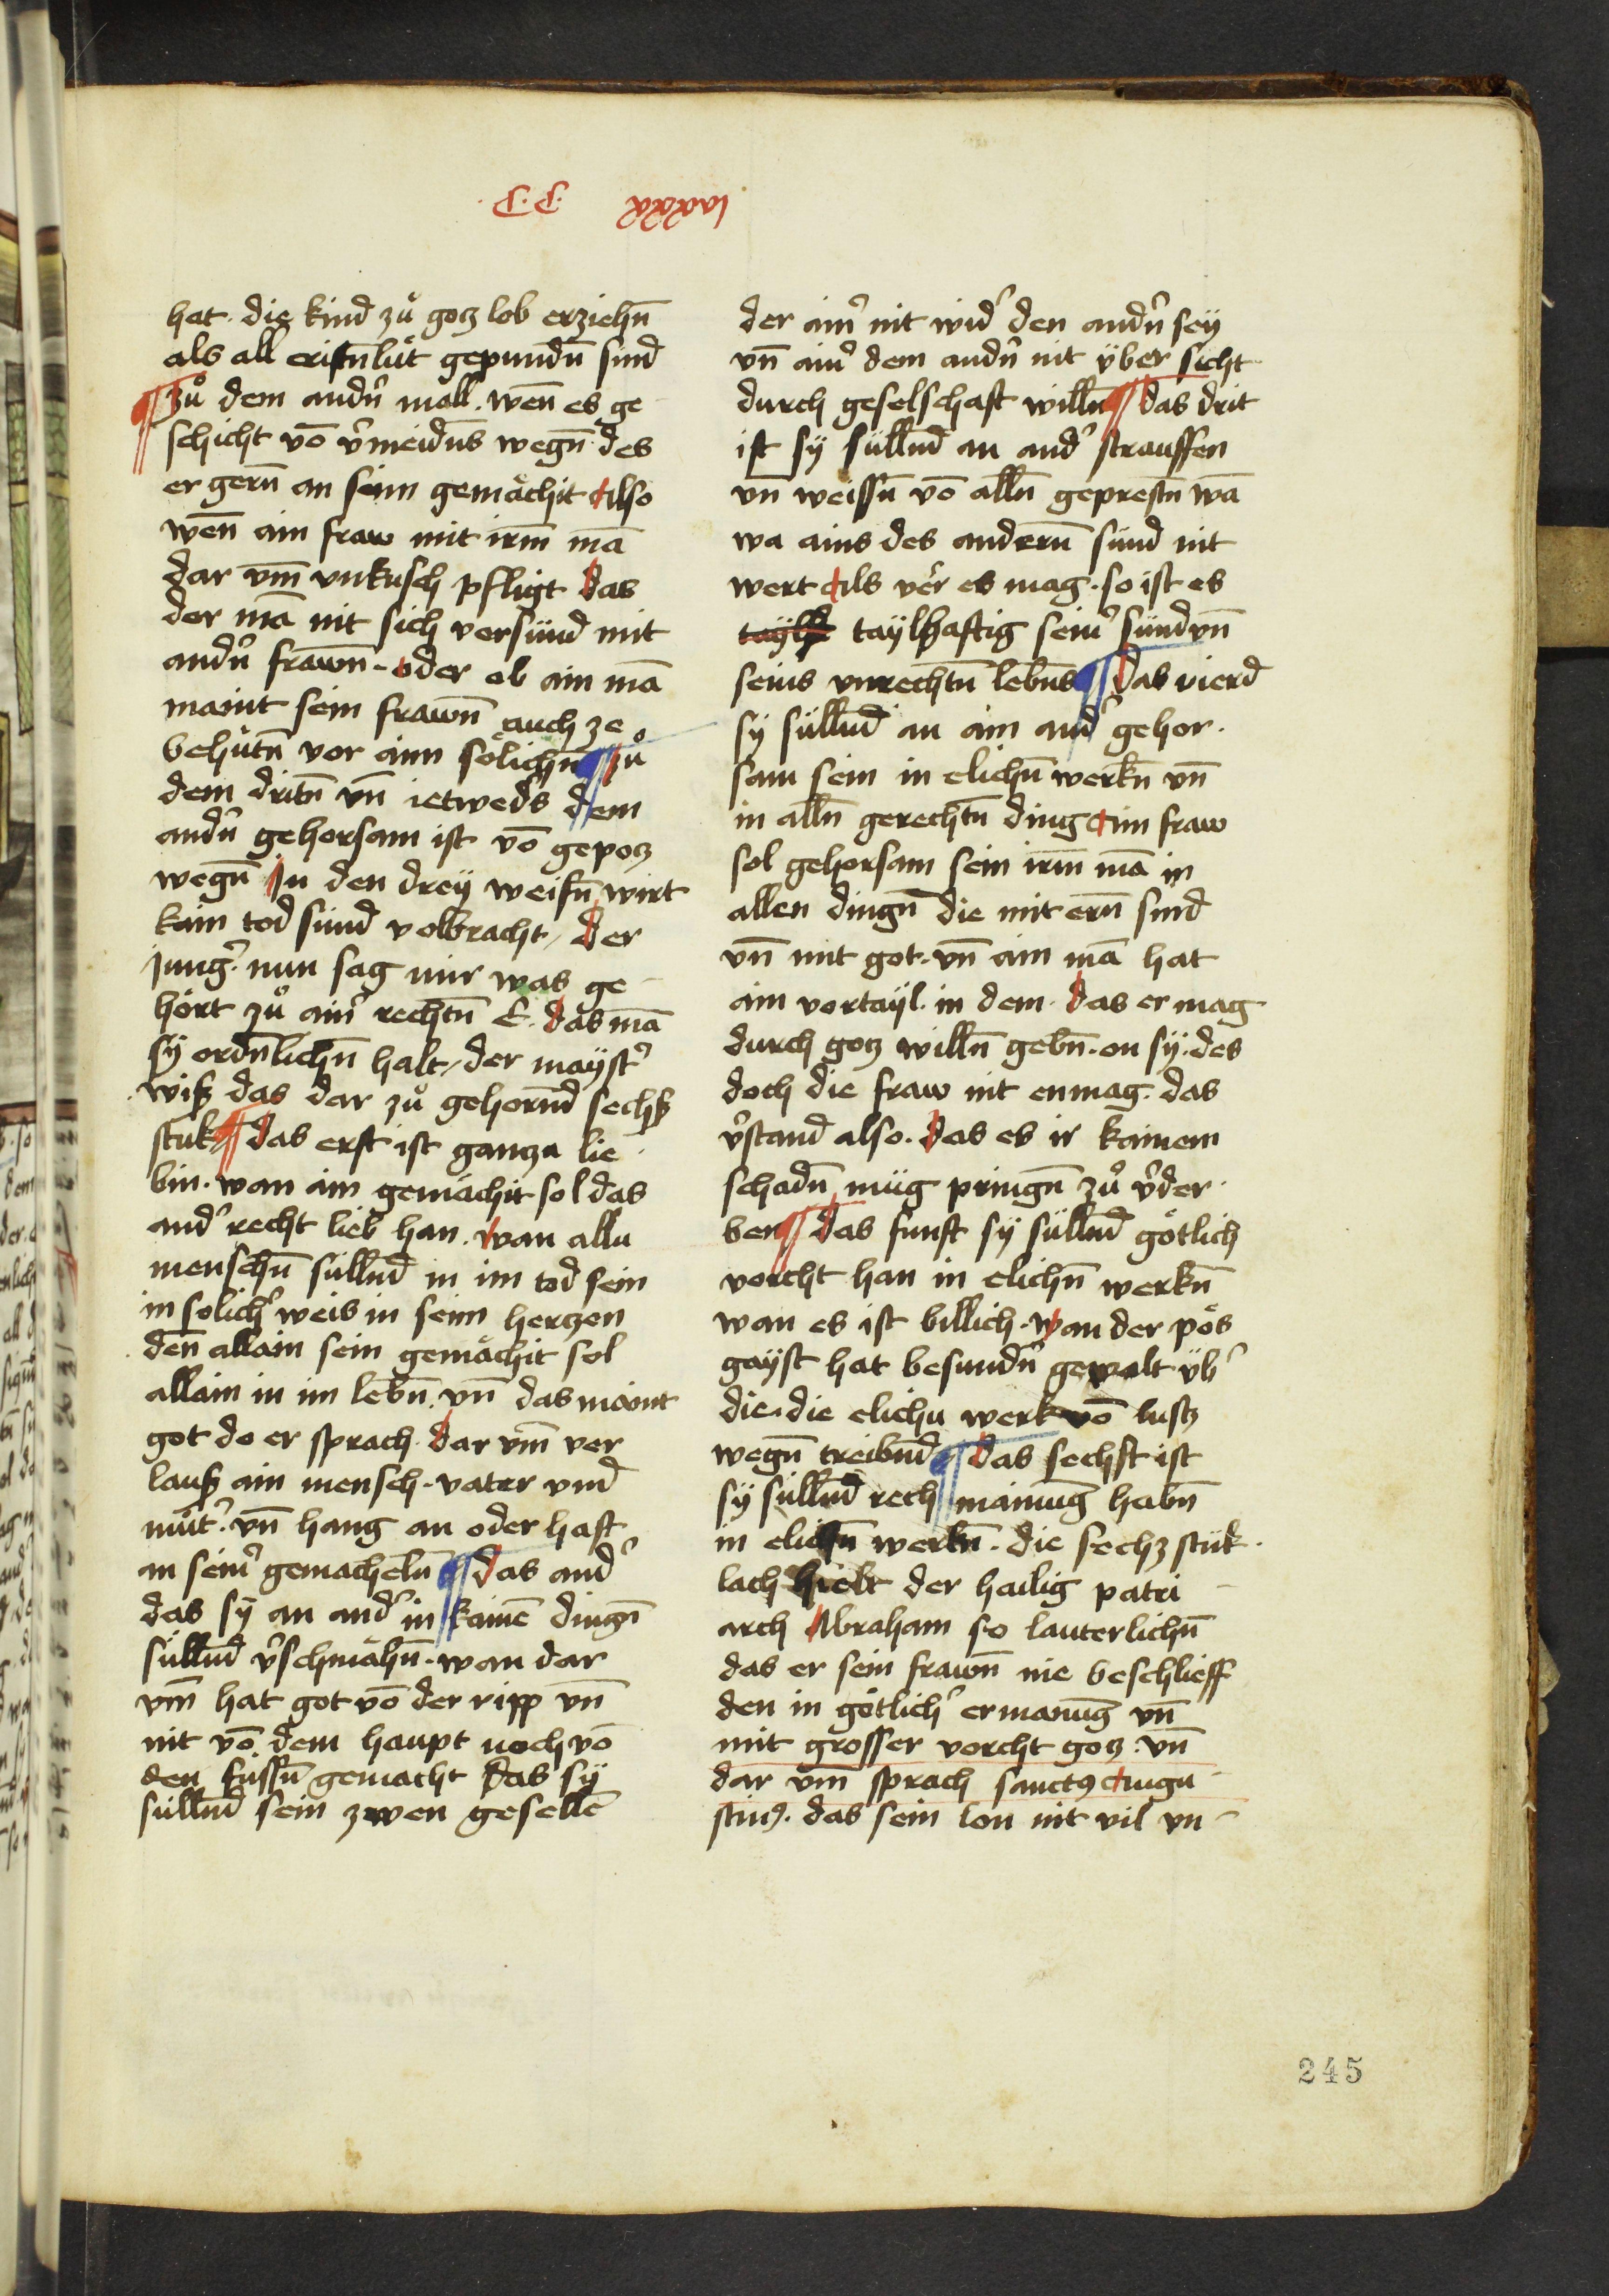 .C.C. lxxxxvi.
hat. die kind zů gotz lob erziehn̄
als all cristnlüt gepundn̄ sind
¶ zů dem andn̉ mall. wen̄ es ge
schicht vō v̉meidn̄s wegn̄ des
er gern̄ an seim gemächit Also
wen̄ ain fraw mit irm̄ mā
dar vm̄ vnkusch pfligt Das
der mā nit sich versünd mit
andn̉ frawn̄. oder ob ain mā
maint sein frawn̄ auch ze
behütn̄ vor aim sölichn̄ ¶ zů
dem dritn̄ vn̄ ietweds̉ dem
andn̉ gehorsam ist vō gepotz
wegn̄ In den dreÿ weisn̄ wirt
kain tod sünd volbracht / Der
jung̉. nun sag mir was ge
hört zů ain̉ rechtn̄ E. das mā
sÿ ordn̄lichn̄ halt / der maÿst̉
wiß das dar zů gehornd̄ sechß
stuk ¶ Das erst ist gantza lie
bin. wan ain gemächit sol das
and̉ recht lieb han. wan alla
menschn̄ süllnd̄ in im tod sein
in solich̉ weis in seim hertzen
den̄ allain sein gemächit sol
allain in im lebn̄. vn̄ das maint
got do er sprach. Dar vm̄ ver
lauß ain mensch. vater vnd̄
můt̉. vn̄ hang an oder haft
an sein̉ gemacheln̄ ¶ Das and̉
das sÿ an and̉ in kainē dingn̄
süllnd̄ v̉schmähn̄. wan dar
vm̄ hat got vō der ripp vn̄
nit vō dem haupt noch vō
den füssn̄ gemacht Das sÿ
süllnd̄ sein zwen gesellē
der ain̉ nit wid̉ den andn̉ seÿ
vn̄ ain̉ dem andn̉ nit ÿber sicht
durch geselschaft willn̄ ¶ das drit
ist sÿ süllnd̄ an and̉ strauffen
vn̄ weissn̄ vō alln̄ geprestn̄ wā
wa ains des andern̄ sünd nit
wert Als ver̉ es mag. so ist es
taÿlhaftig sein̉ sünd vn̄
seins vnrechtn̄ lebn̄s ¶ Das vierd
sÿ süllnd̄ an ain and̉ gehor
sam sein in elichn̄ werkn̄ vn̄
in alln̄ gerechtn̄ ding Ain fraw
sol gehorsam sein irm̄ mā in
allen dingn̄ die mit ern̄ sind
vn̄ mit got. vn̄ ain mā hat
ain vortaÿl. in dem. das er mag
durch gotz willn̄ gebn̄. on sÿ. des
doch die fraw nit enmag. das
v̉stand also. Das es ir kainem
schadn̄ müg pringn̄ zů v̉der
ben ¶ Das funft sÿ süllnd̄ götlich
vorcht han in elichn̄ werkn̄
wan es ist billich. wan der pös
gaÿst hat besundn̉ gewalt ÿb̉
die. die elichu werk vō lustz
wegn̄ treibnd̄ ¶ Das sechst ist
sÿ süllnd̄ rech mainūg habn̄
in elichn̄ werkn̄. die sechz stük
lach hielt der hailig patri
arch Abraham so lauterlichn̄
das er sein frawn̄ nie beschlieff
den in götlich̉ ermanūg vn̄
mit grosser vorcht gotz. vn̄
dar vm̄ sprach sanctꝰ Augu
stinꝰ. das sein lon nit vil vn
245